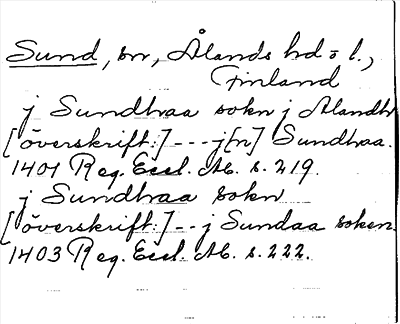 Sund, sn, Ålands hd o l.,
Finland
j Sundhraa sokn j Alandh
[överskrift:] --- j[n] Sundhaa.
1401 Reg. Eccl. Ab. s. 219.
j Sundhraa sokn
[överskrift:] -- j Sundaa soken.
1403 Reg. Eccl. Ab. s. 222.